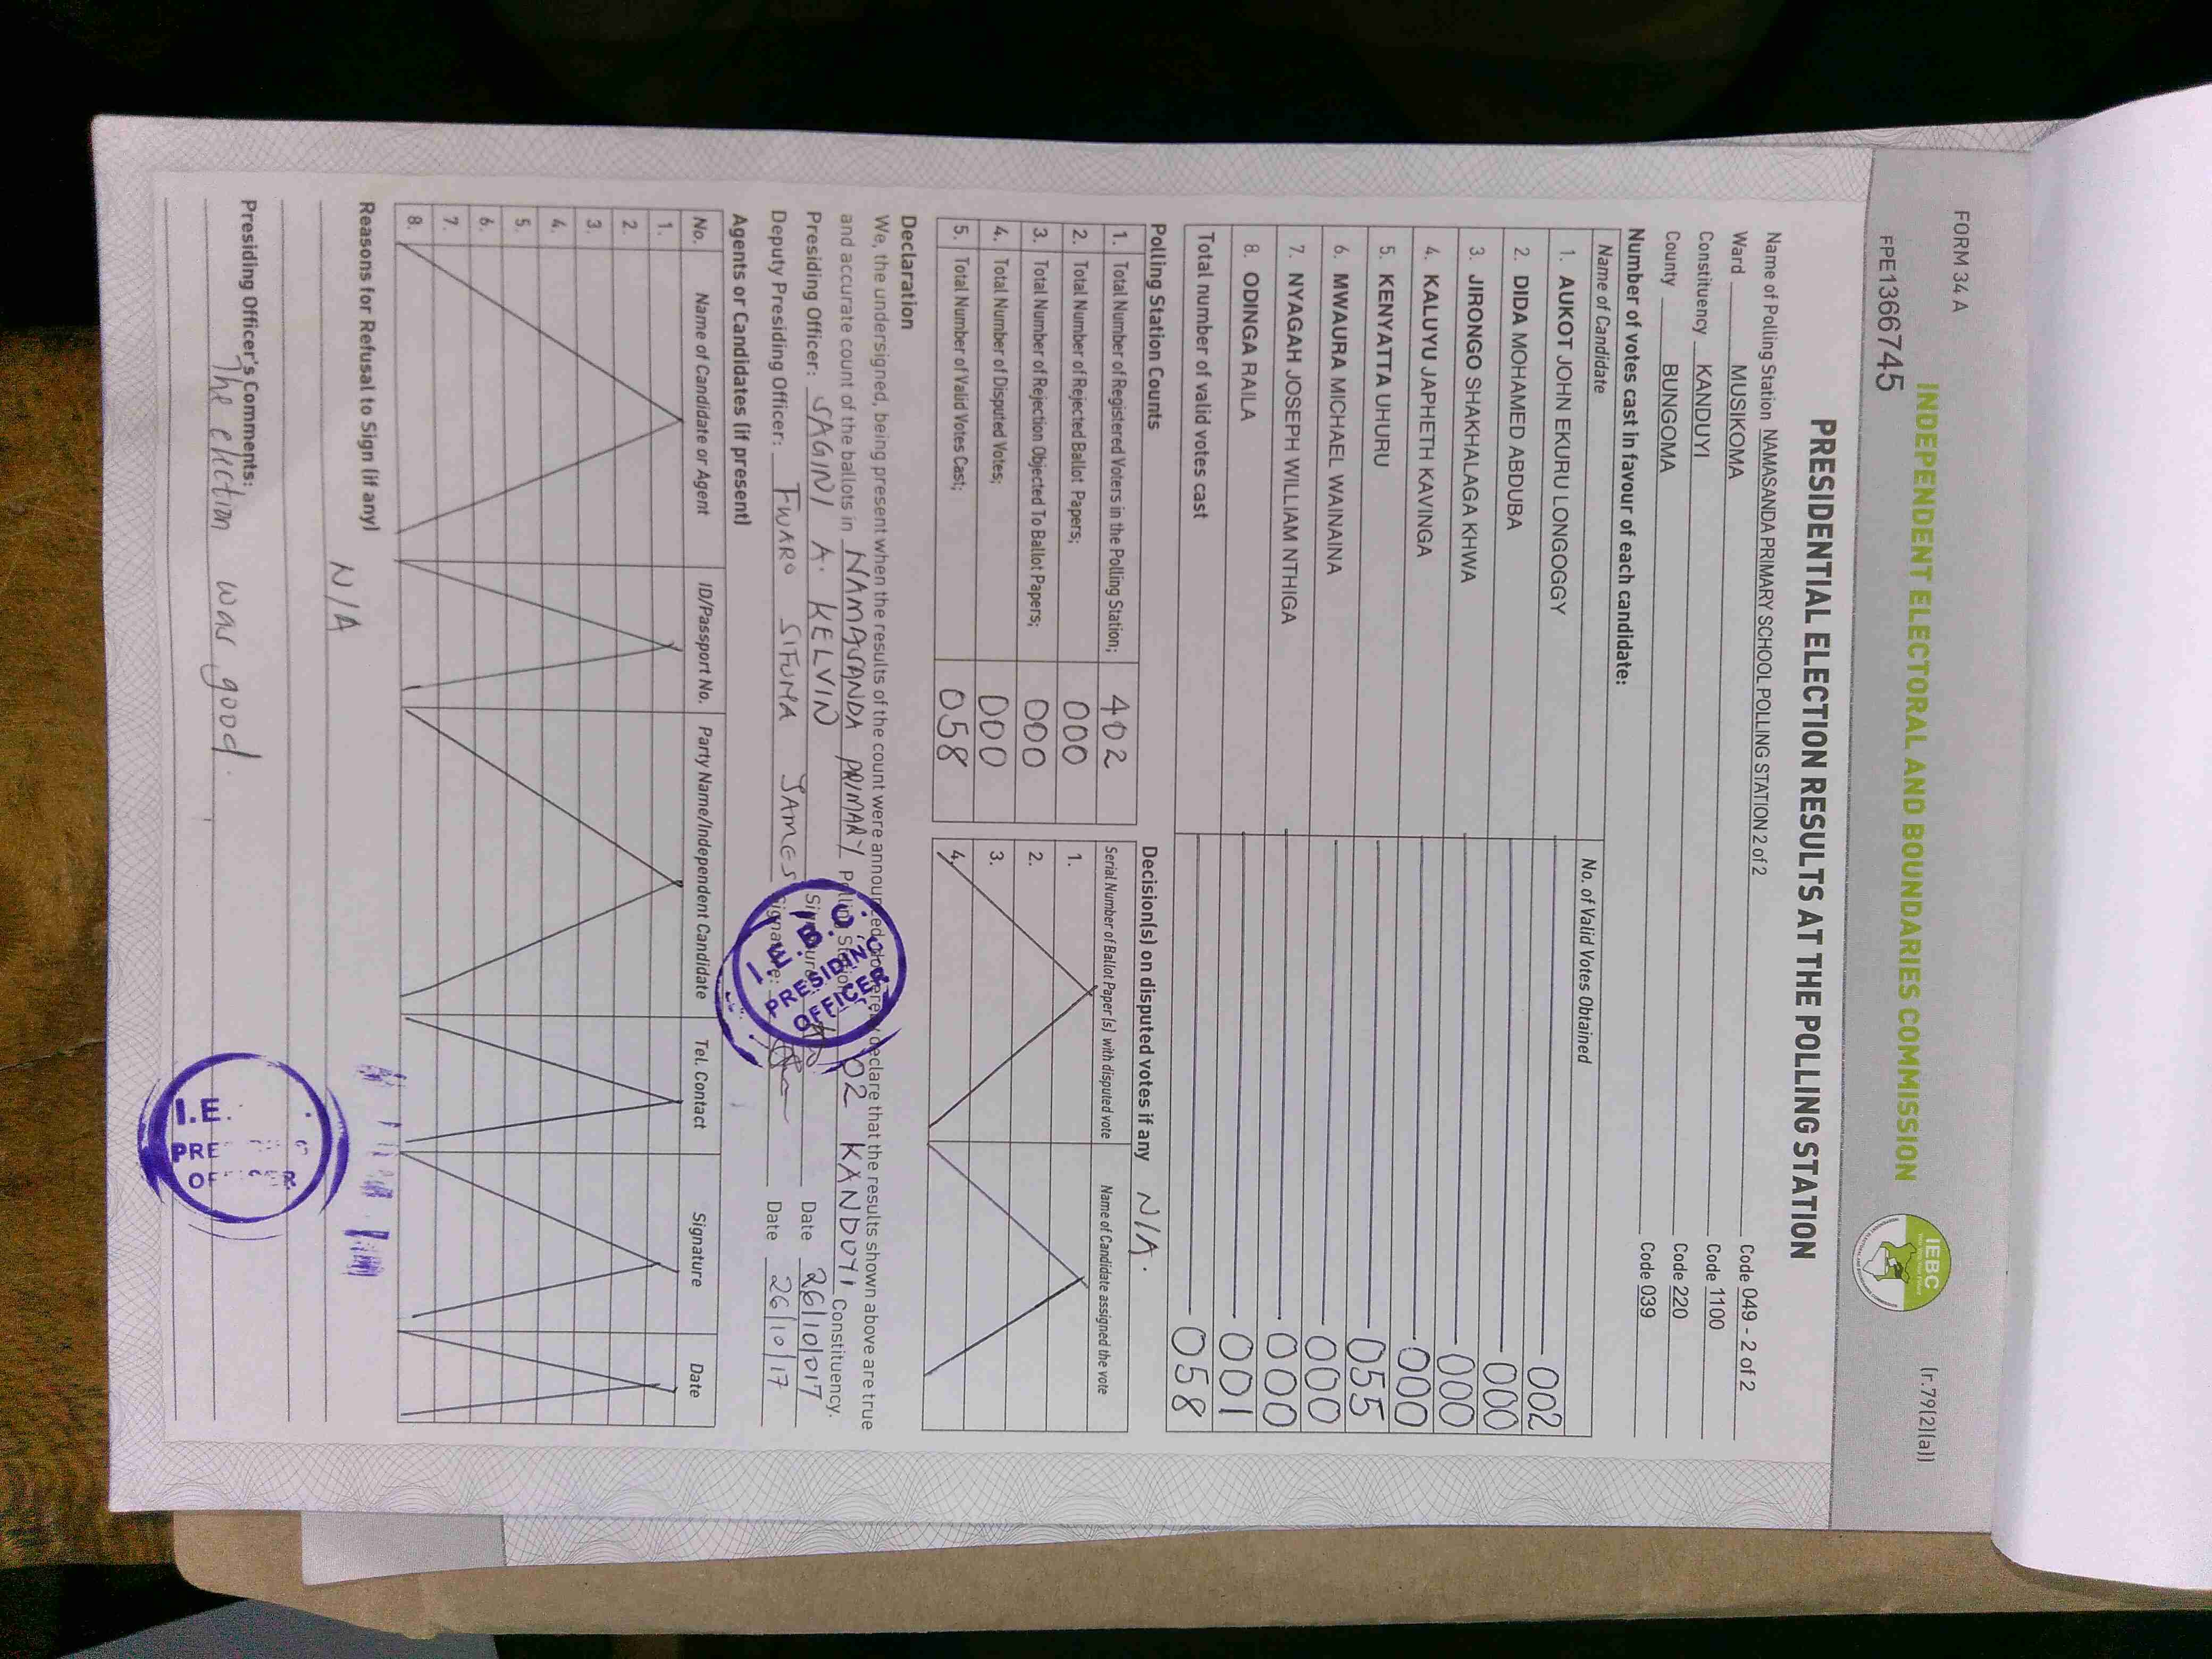 FORM 34 A
(r.79(2)(a))
INDEPENDENT ELECTORAL AND BOUNDARIES COMMISSION
IEBC
FPE136745
PRESIDENTIAL ELECTION RESULTS AT THE POLLING STATION
Name of Polling Station NAMASANDA PRIMARY SCHOOL POLLING STATION 2 of 2 Code 049 - 2 of 2
Ward MUSIKOMA Code 1100
Constituency KANDUYI Code 220
County BUNGOMA Code 039
Number of votes cast in favour of each candidate:
Name of Candidate No. of Valid Votes Obtained
1. AUKOT JOHN EKURU LONGOGGY 002
2. DIDA MOHAMED ABDUBA 000
3. JIRONGO SHAKHALAGA KHWA 000
4. KALUYU JAPHETH KAVINGA 000
5. KENYATTA UHURU 055
6. MWAURA MICHAEL WAINAINA 000
7. NYAGAH JOSEPH WILLIAM NTHIGA 000
8. ODINGA RAILA 001
Total number of valid votes cast 058
Polling Station Counts
1. Total Number of Registered Voters in the Polling Station; 402
2. Total Number of Rejected Ballot Papers; 000
3. Total Number of Rejection Objected To Ballot Papers; 000
4. Total Number of Disputed Votes; 000
5. Total Number of Valid Votes Cast; 058
Decision(s) on disputed votes if any N/A.
Serial Number of Ballot Paper(s) with disputed vote Name of Candidate assigned the vote
1.
2.
3.
4.
Declaration
We, the undersigned, being present when the results of the count were announced, do hereby declare that the results shown above are true
and accurate count of the ballots in NAMASANDA PRIMARY Polling Station 02 KANDUYI Constituency.
Presiding Officer: SAGINI A. KELVIN Signature: Date 26/10/017
Deputy Presiding Officer: FWARO SITUMA JAMES Signature: Date 26/10/17
I.E.B.C
PRESIDING
OFFICER
Agents or Candidates (if present)
No. Name of Candidate or Agent ID/Passport No. Party Name/Independent Candidate Tel. Contact Signature Date
1.
2.
3.
4.
5.
6.
7.
8.
Reasons for Refusal to Sign (if any)
N/A
Presiding Officer's Comments:
The election was good.
I.E.
PRE
OF